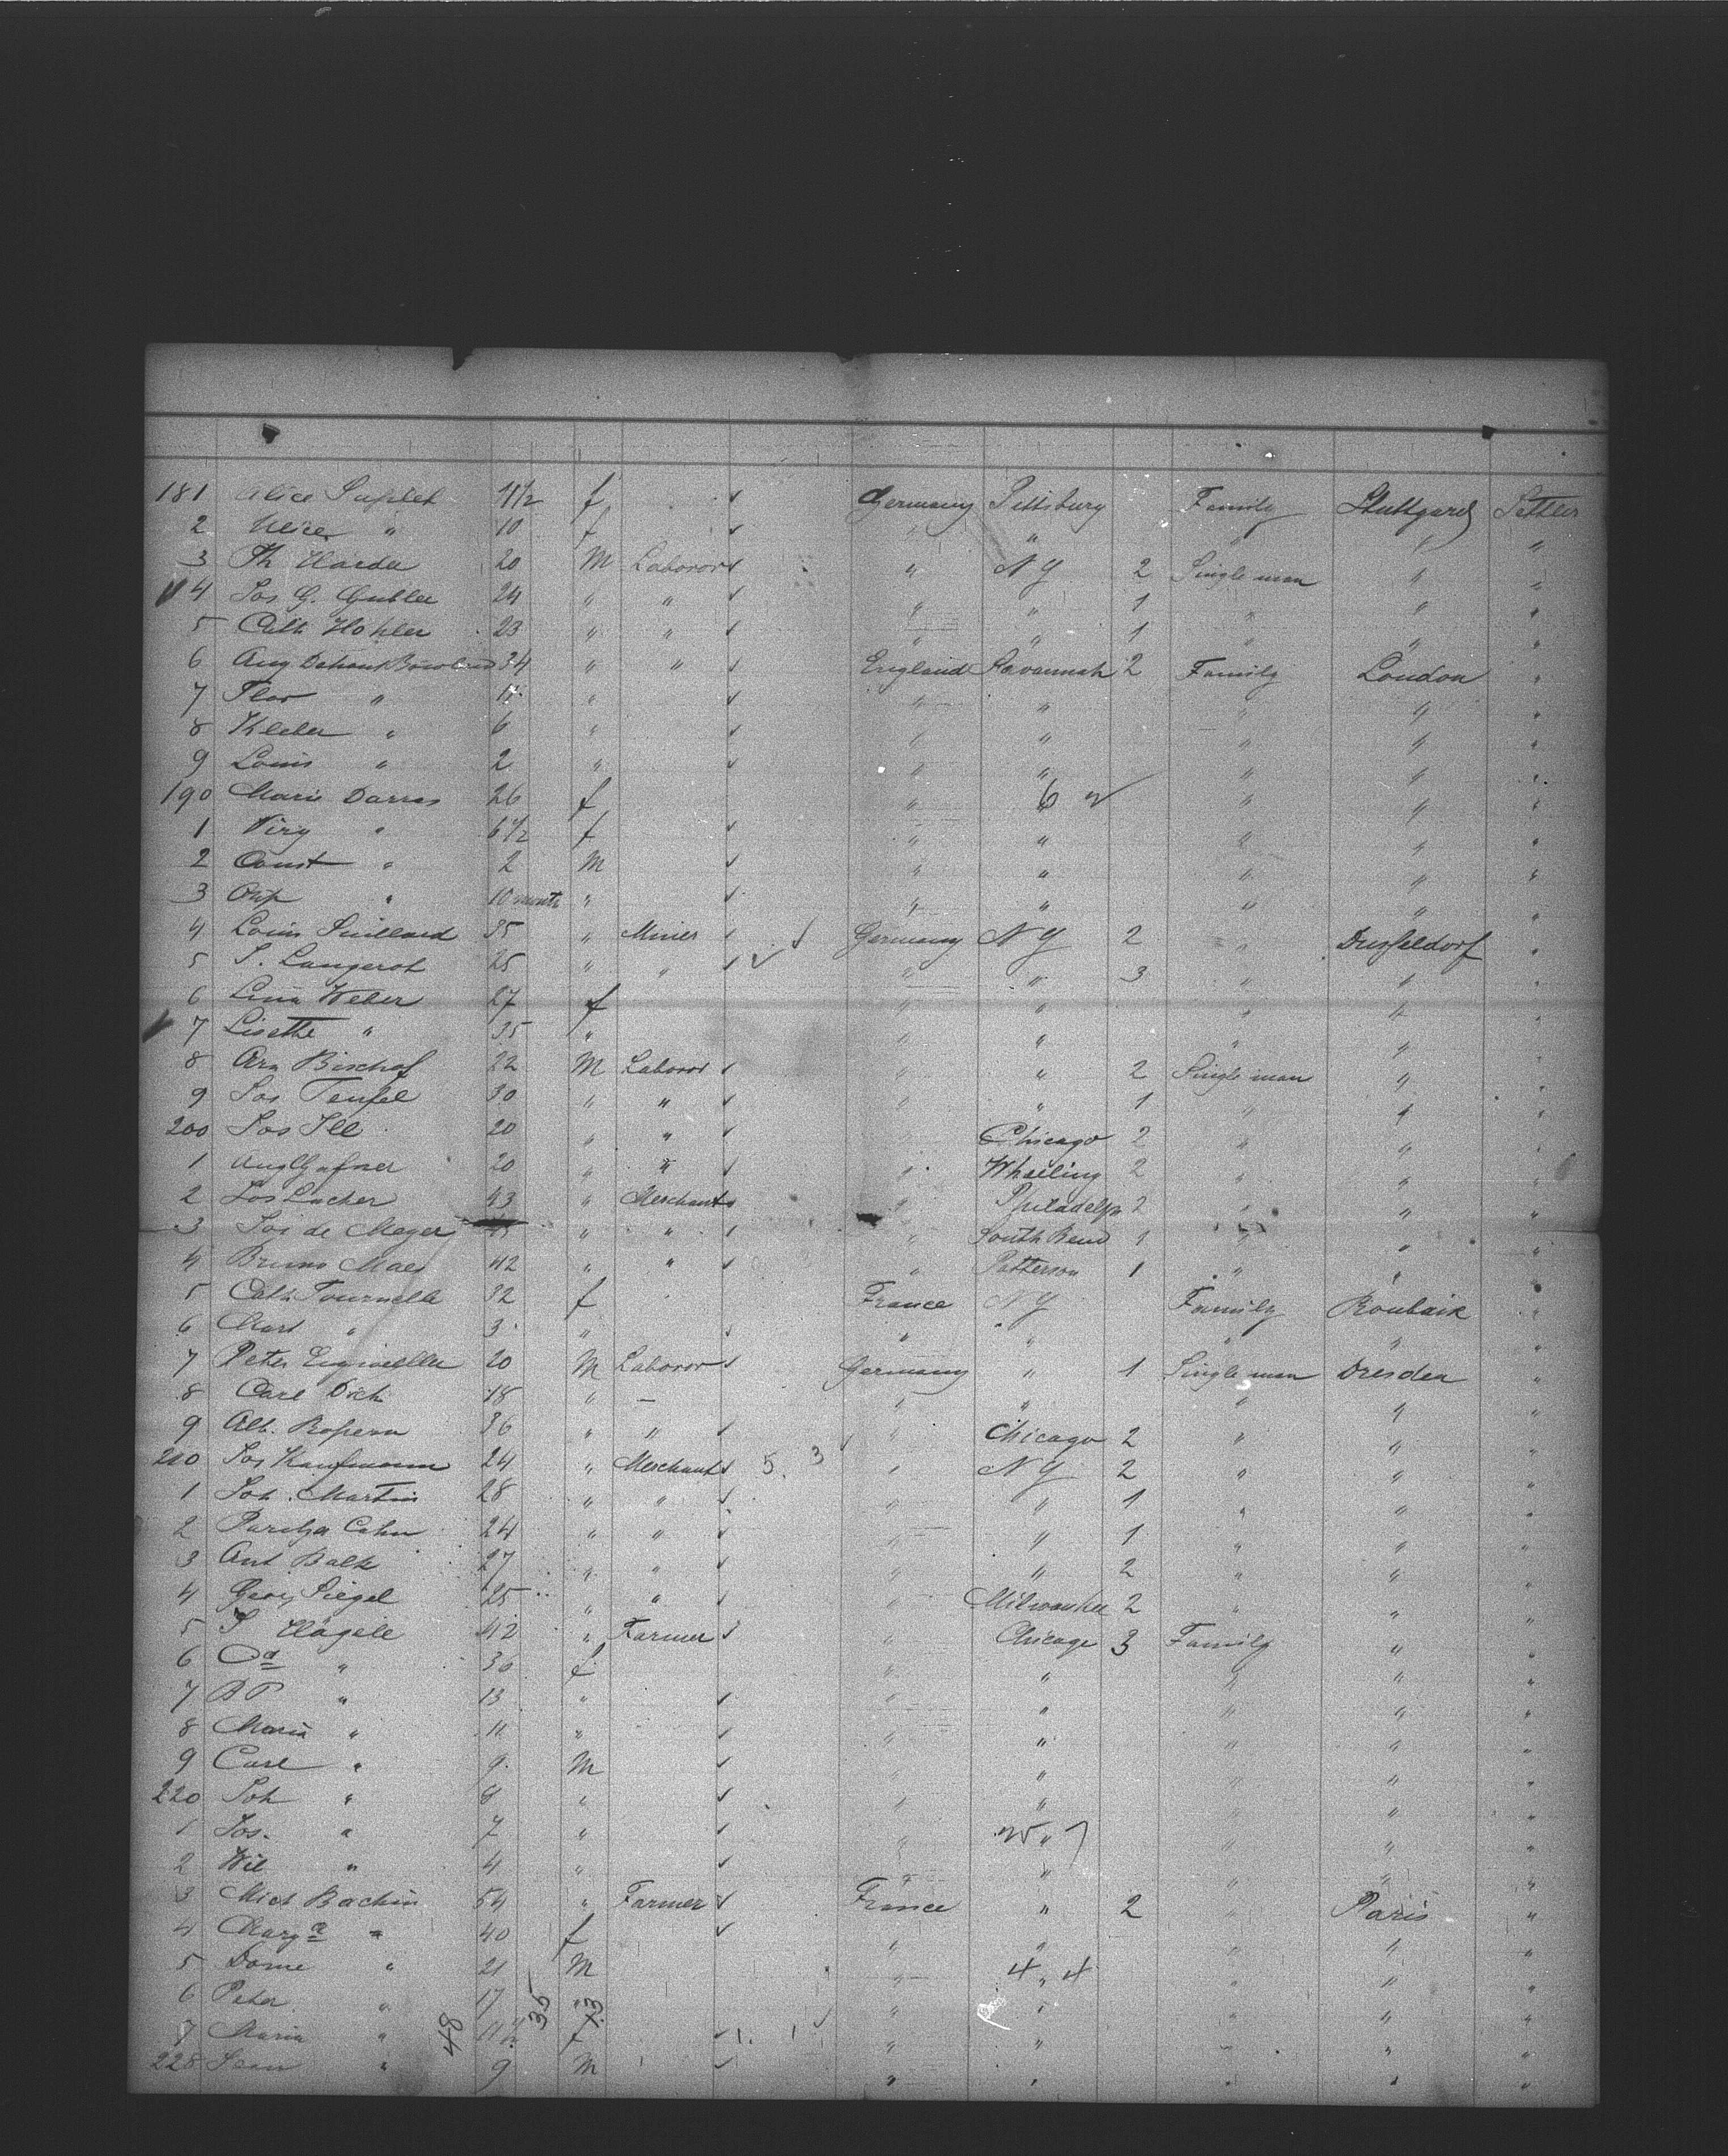 181 Alice Suplet 4 1/2 f Germany Pittsburg Family Stuttgard Settler
2 Alice " 10 f " " " " "
3 Th Harder 20 M Laboror " N Y 2 Single man " "
4 Jos G. Gubler 24 " " " " 1 " " "
5 Cath Hohler 23 " " " " 1 " " "
6 Aug 34 " " England Savannah 2 Family London "
7 Flor " 11 " " " " " "
8 Kleber " 6 " " " " " "
9 Louis " 2 " " " " " "
190 Marie Darras 26 f " 6 " " "
1 Virg " 6 1/2 f " " " " "
2 Const " 2 M " " " " "
3 " 10 month " " " " " "
4 Louis Suillard 35 " Miner Germany N Y 2 " Dusseldorf "
5 S. Langerot 25 " " " " 3 " " "
6 Lina Weber 27 f " " " " "
7 Lisette " 35 " " " " " "
8 Arn Bischof 22 M Laboror " " 2 Single man " "
9 Jos Teufel 30 " " " " 1 " " "
200 Jos Ill 20 " " Chicago 2 " " "
1 Aug Gafner 20 " " " Wheeling 2 " " "
2 Jos Lacher 43 " Merchant " Philadelp 2 " " "
3 Jos de Meyer " " " South Bend 1 " " "
4 Bruno Maes 42 " " " Patterson 1 " " "
5 Cath Tournelle 32 f France N Y Family Roubaix "
6 Mart " 3 " " " " " "
7 Peter 20 M Laboror Germany " 1 Single man Dresden "
8 Carl Dich 18 " — " " " " "
9 Alb. 36 " " " Chicago 2 " " "
210 Jos Kaufmann 24 " Merchant 5. 3 " N Y 2 " " "
1 Joh. Martin 28 " " " " 1 " " "
2 Cahn 24 " " " " 1 " " "
3 Ant Balk 27 " " " " 2 " " "
4 Georg Siegel 25 " " " Milwaukee 2 " " "
5 J Hägele 42 " Farmer " Chicago 3 Family " "
6 " 36 f " " " " "
7 " 13 " " " " " "
8 Maria " 11 " " " " " "
9 Carl " 9 M " " " " "
220 Joh " 8 " " " " " "
1 Jos. " 7 " " " 7 " " "
2 Wil " 4 " " " " " "
3 Mich Bachin 54 " Farmer France " 2 " Paris "
4 Marg a " 40 f " " " " "
5 Dome " 21 M " 4 " 4 " " "
6 Peter " 17 " " " " " "
7 Maria " 11 1/2 f " " " " "
228 Jean " 9 M " " " "
48 35 13